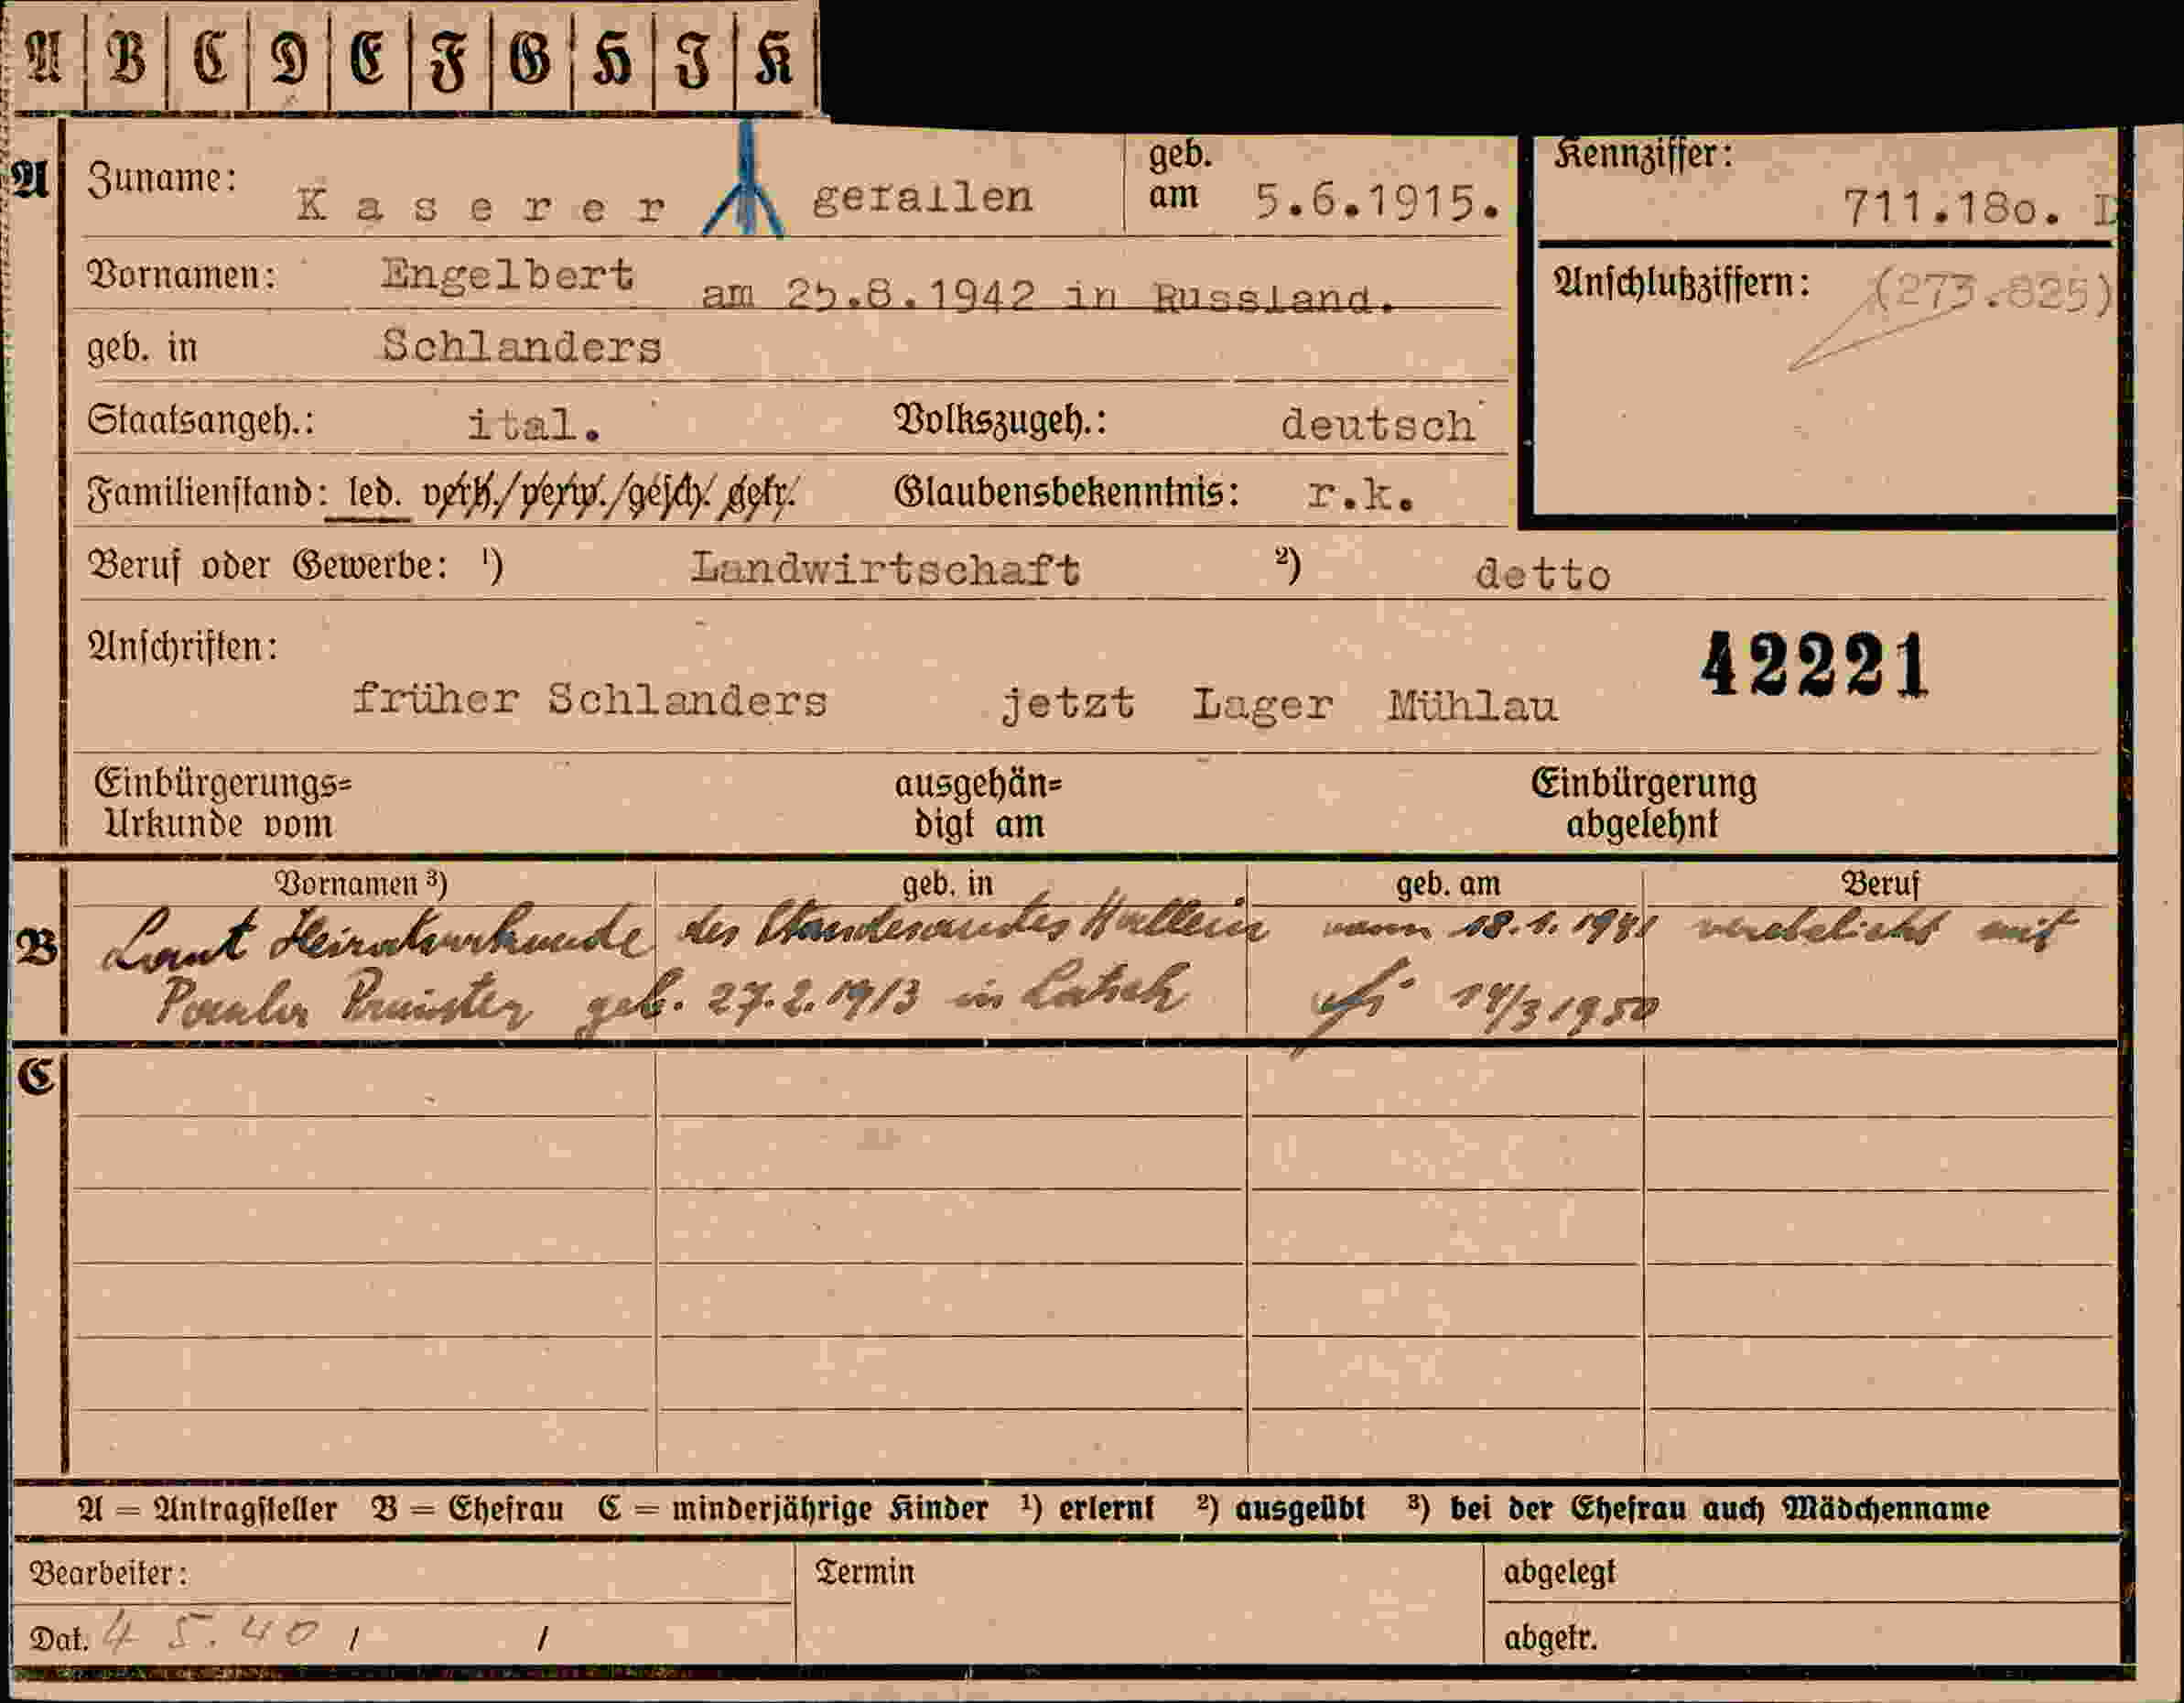 A B C D E F G H I K
A
Zuname: Kaserer gefallen geb. am 5.6.1915.
Kennziffer: 711.18o. D
Vornamen: Engelbert am 25.8.1942 in Russland.
Anschlußziffern: (273.825)
geb. in Schlanders
Staatsangeh.: ital. Volkszugeh.: deutsch
Familienstand: led. verh./verw./gesch. getr. Glaubensbekenntnis: r.k.
Beruf oder Gewerbe: ¹) Landwirtschaft ²) detto
Anschriften:
42221
früher Schlanders jetzt Lager Mühlau
Einbürgerungs= ausgehän= Einbürgerung
Urkunde vom digt am abgelehnt
B
Vornamen ³) geb. in geb. am Beruf
Laut Heiratsurkunde des Standesamtes Hallein vom 18.1.1941 verehelicht mit
geb. 27.2.1913 in Latsch 14/3 1950
C
A = Antragsteller B = Ehefrau C = minderjährige Kinder ¹) erlernt ²) ausgeübt ³) bei der Ehefrau auch Mädchenname
Bearbeiter: Termin abgelegt
Dat. 4 5. 40 / / abgetr.